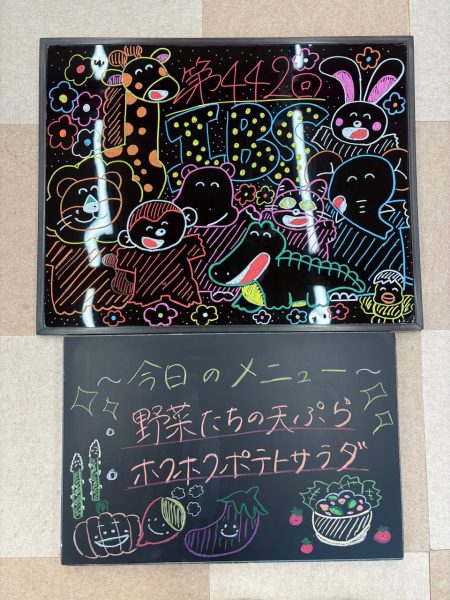 第442回
IBS
~今日のメニュー~
野菜たちの天ぷら
ホクホクポテトサラダ